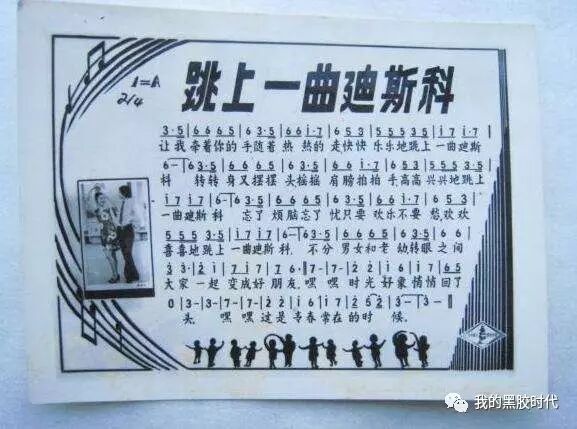 跳上一曲迪斯科
1=A
2/4
3·5|6 6 6 5|6 3·5|6 6 i·7|6 5 3|5 5 5 3 5|i 7 i·7|
让我 牵着你的 手随着 热 热的 走快快 乐乐地跳上 一曲迪斯
6-|6 3·5|6 6 6 5|6 3·5|6 6 i·7|6 5 3|5 5 5 3·5|
科 转转 身又摆摆 头摇摇 肩膀拍拍 手高高 兴兴地跳上
i 7 i 7|6-|6 3·5|6 6 6 5|6 3·5|6 6 i·7|6 5 3|
一曲迪斯 科 忘了 烦脑忘了 忧只要 欢乐不要 愁欢欢
5 5 5 3·5|i 7 i 7|6-|6 3·5|6 6 6 5|6 3·5|6 6|
喜喜地跳上 一曲迪斯 科, 不分 男女和老 幼转眼 之间
大家 一起 变成好 朋友, 嘿 嘿 时光 好象 悄悄 回了
头, 嘿 嘿 这是 青春 常在的 时 候.
我的黑胶时代